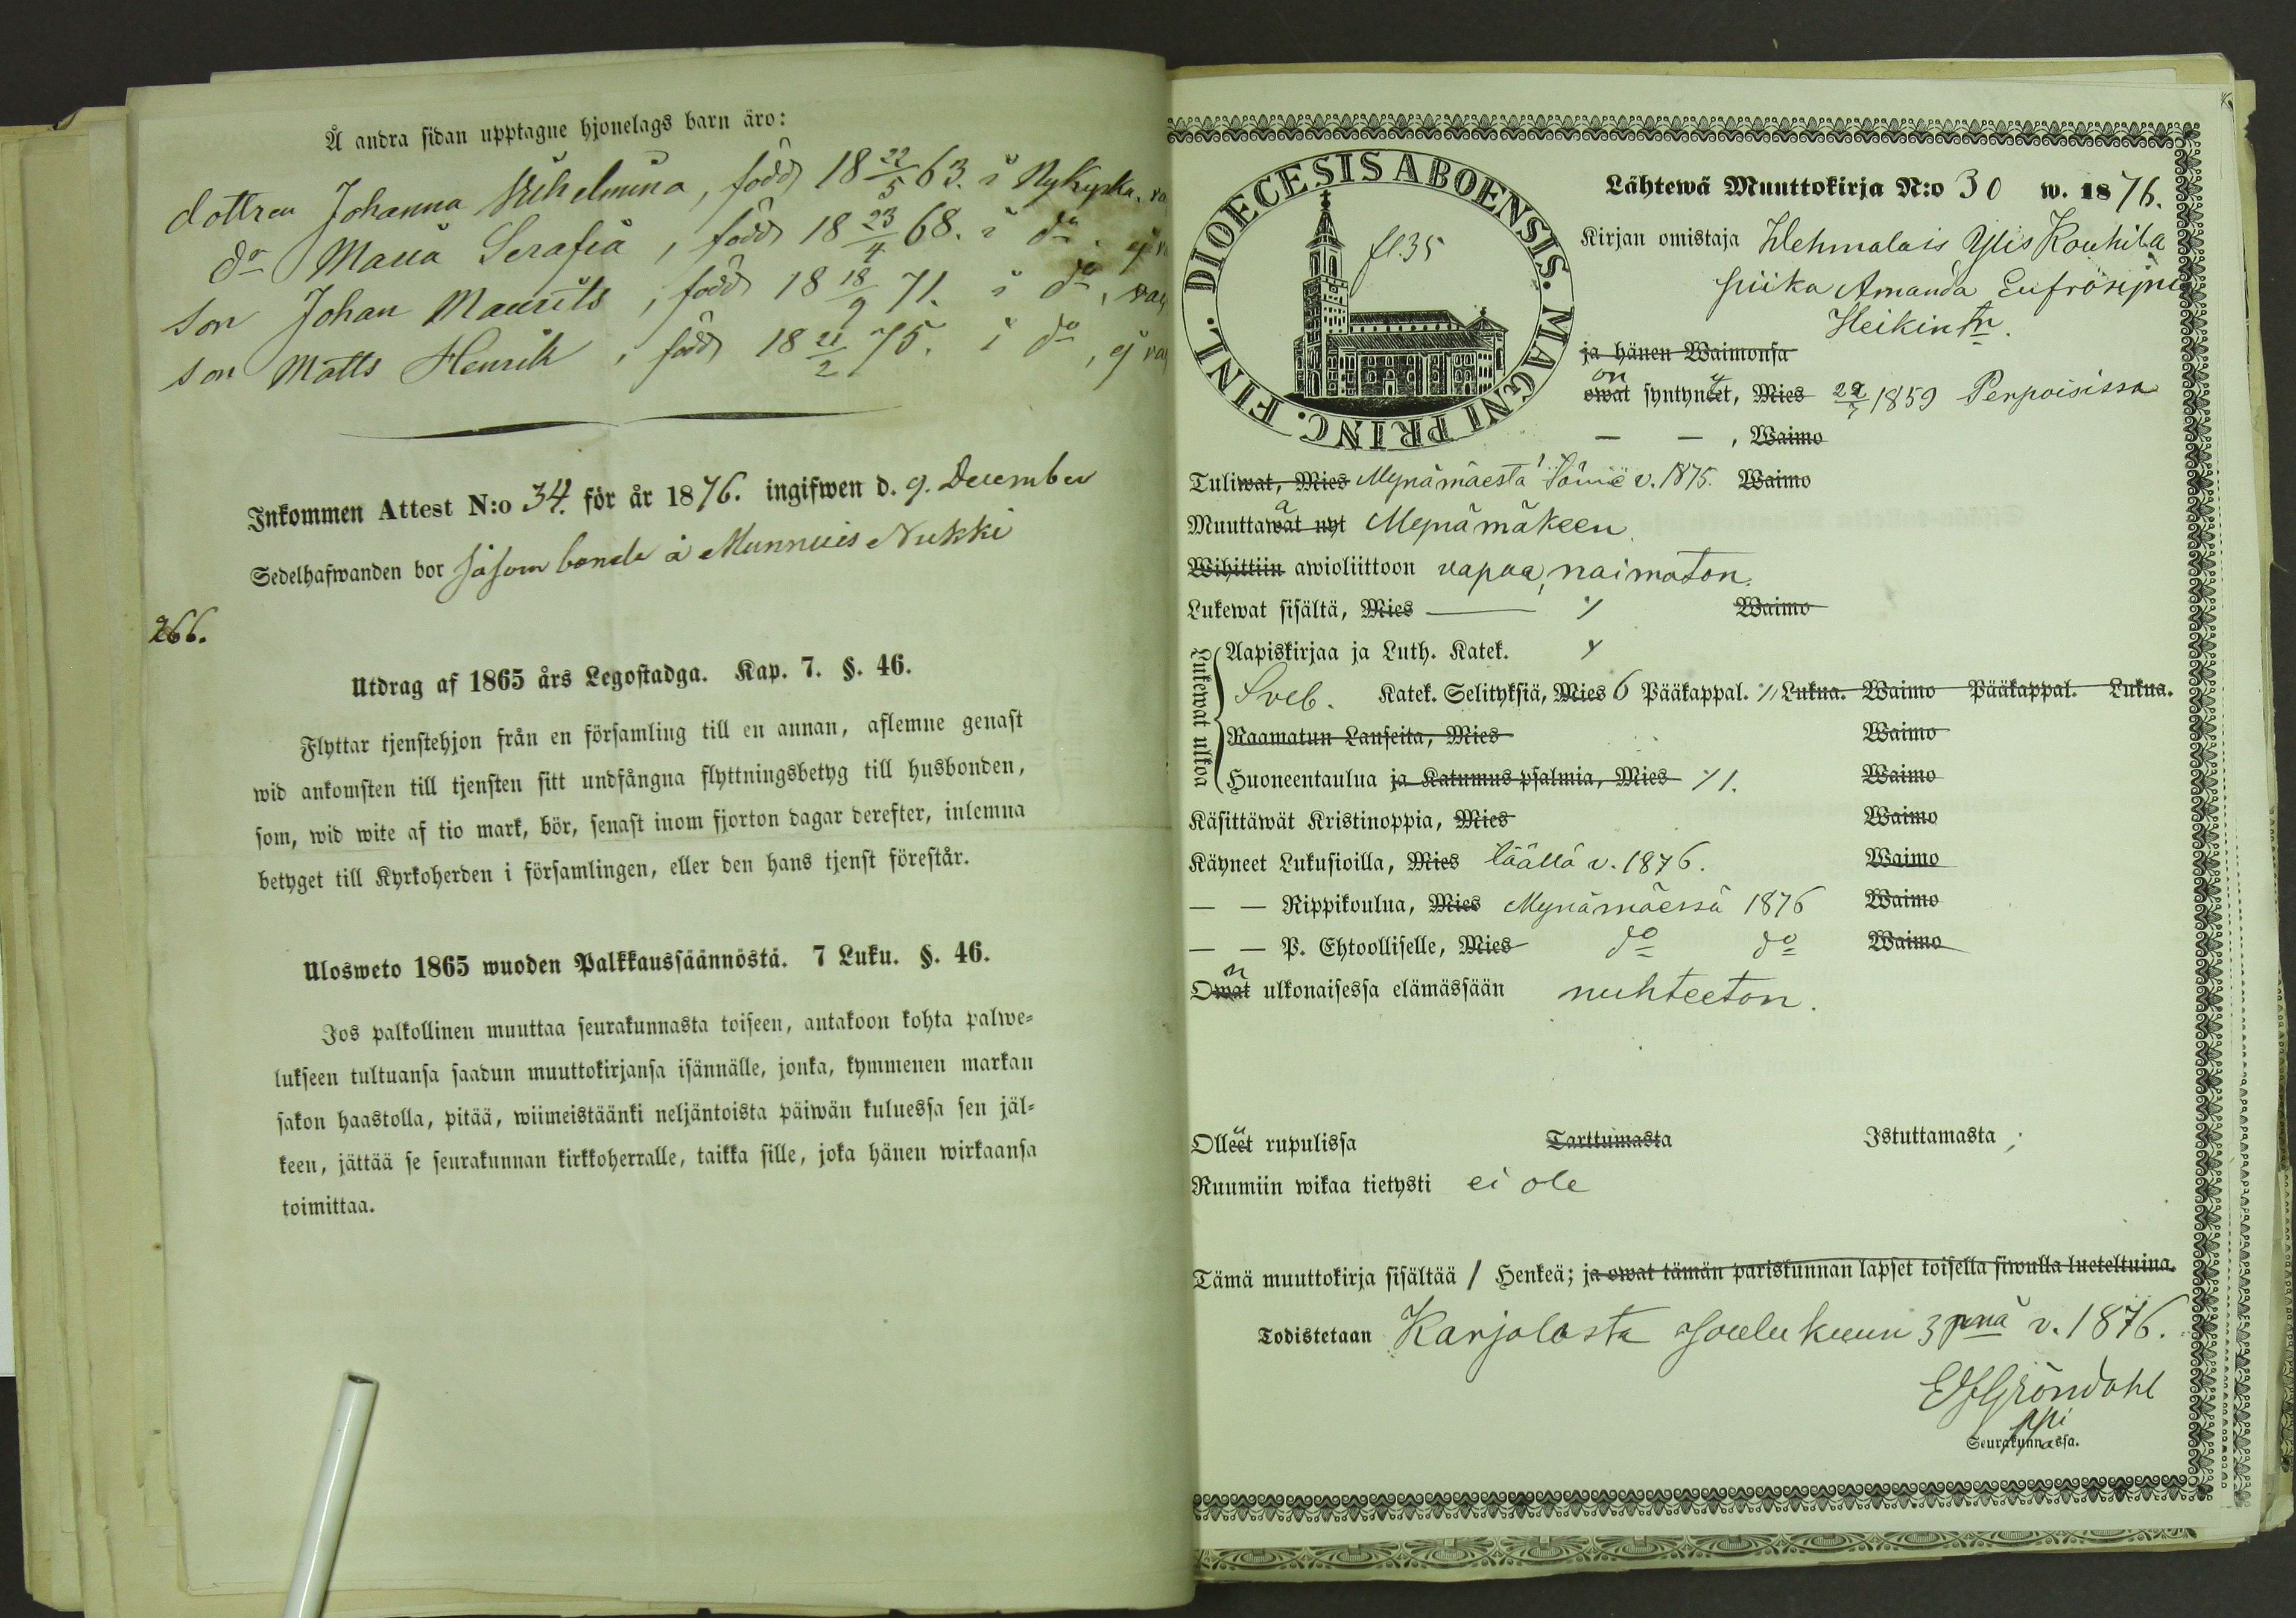 Å andra sidan upptagne hjonelags barn äro:
dottren Johanna Wilhelmina, född 18 22/5 63. i Nykyrka,
do Maria Serafia, född 18 23/4 68. i do. ej
son Johan Maurits, född 18 18/9 71. i do,
son Matts Henrik, född 18 21/2 75. i do, ej
Inkommen Attest N:o 34. för år 1876. ingifwen d. 9. December
Sedelhafwanden bor såsom bonde å Munnuis Nukki
266.
Utdrag af 1865 års Legostadga. Kap. 7. §. 46.
Flyttar tjenstehjon från en församling till en annan, aflemne genast
wid ankomsten till tjensten sitt undfångna flyttningsbetyg till husbonden,
som, wid wite af tio mark, bör, senast inom fjorton dagar derefter, inlemna
betyget till Kyrkoherden i församlingen, eller den hans tjenst förestår.
Ulosweto 1865 wuoden Palkkaussäännöstä. 7 Luku. §. 46.
Jos palkollinen muuttaa seurakunnasta toiseen, antakoon kohta palwe=
lukseen tultuansa saadun muuttokirjansa isännälle, jonka, kymmenen markan
sakon haastolla, pitää, wiimeistäänki neljäntoista päiwän kuluessa sen jäl=
keen, jättää se seurakunnan kirkkoherralle, taikka sille, joka hänen wirkaansa
toimittaa.
DIOECESIS ABOENSIS. MAGNI PRINC. FINL.
fl. 35
Lähtewä Muuttokirja N:o 30 w. 1876.
Kirjan omistaja Wehmalais Ylis Kouhila
piika Amanda Eufrosyne
Heikintr.
ja hänen Waimonsa
on
owat syntyneet, Mies 22/7 1859 Penpoisissa
— — , Waimo
Tuliwat, Mies Mynämäestä tänne v. 1875. Waimo
a
Muuttawat nyt Mynämäkeen.
Wihittiin awioliittoon vapaa, naimaton.
Lukewat sisältä, Mies — Waimo
Lukewat ulkoa
Aapiskirjaa ja Luth. Katek.
Sveb. Katek. Selityksiä, Mies 6 Pääkappal. Lukua. Waimo Pääkappal. Lukua.
Raamatun Lauseita, Mies Waimo
Huoneentaulua ja Katumus psalmia, Mies Waimo
Käsittäwät Kristinoppia, Mies Waimo
Käyneet Lukusioilla, Mies täällä v. 1876. Waimo
— — Rippikoulua, Mies Mynämäessä 1876 Waimo
— — P. Ehtoolliselle, Mies do do Waimo
n
Owat ulkonaisessa elämässään nuhteeton.
Olleet rupulissa Tarttumasta Istuttamasta ;
Ruumiin wikaa tietysti ei ole
Tämä muuttokirja sisältää 1 Henkeä; ja owat tämän pariskunnan lapset toisella siwulla lueteltuina.
Todistetaan Karjalasta Joulukuun 3 pnä v. 1876.
Gröndahl
Seurakunnassa.